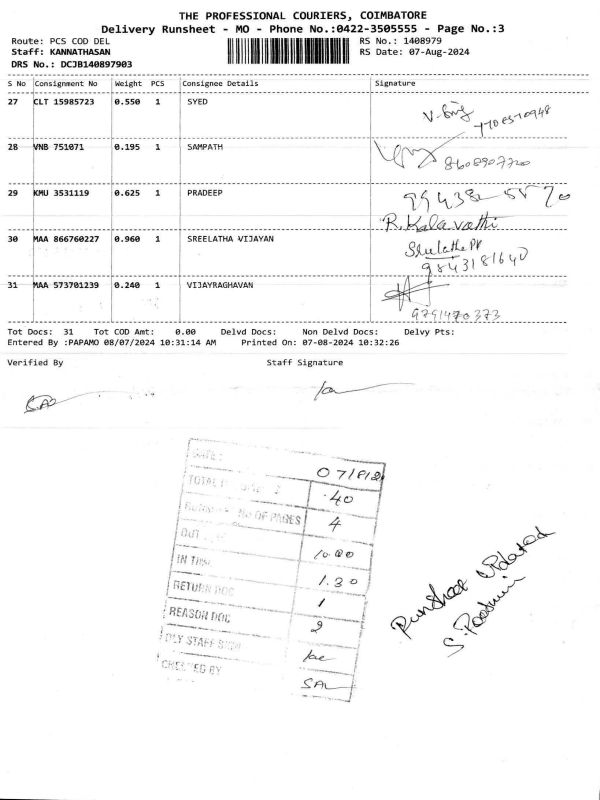 THE PROFESSIONAL COURIERS, COIMBATORE
Delivery Runsheet - MO - Phone No.:0422-3505555 - Page No.:3
Route: PCS COD DEL RS No.: 1408979
Staff: KANNATHASAN RS Date: 07-Aug-2024
DRS No.: DCJB140897903
S No Consignment No Weight PCS Consignee Details Signature
27 CLT 15985723 0.550 1 SYED
28 VNB 751071 0.195 1 SAMPATH
8608907720
29 KMU 3531119 0.625 1 PRADEEP
R. Kalavathi
30 MAA 866760227 0.960 1 SREELATHA VIJAYAN
9843181640
31 MAA 573701239 0.240 1 VIJAYRAGHAVAN
9791470373
Tot Docs: 31 Tot COD Amt: 0.00 Delvd Docs: Non Delvd Docs: Delvy Pts:
Entered By :PAPAMO 08/07/2024 10:31:14 AM Printed On: 07-08-2024 10:32:26
Verified By Staff Signature
DATE: 07/8/2
TOTAL 40
NO OF PAGES 4
OUT 10.00
IN TIME 1.30
RETURN DOC 1
REASON DOC 2
DLY STAFF SIGN
CHECKED BY
Runsheet updated